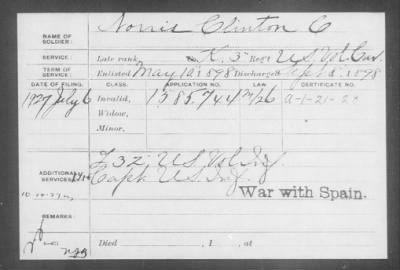 NAME OF SOLDIER: Norris Clinton C
SERVICE: Late rank, Co. K, 3" Reg't U.S. Vol. Cav.
TERM OF SERVICE: Enlisted May 12, 1898 Discharged Sept 8, 1898
DATE OF FILING. CLASS. APPLICATION NO. LAW. CERTIFICATE NO.
1927 July 6 Invalid, 1585744
Widow,
Minor,
ADDITIONAL SERVICES: 32 U.S. Vol. Inf.
Capt. U.S. Inf.
War with Spain.
REMARKS:
Died , 1 , at